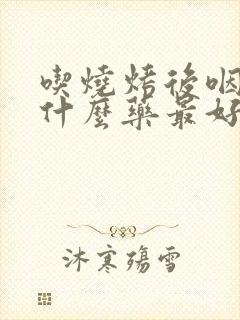 喫燒烤後咽
什麼藥最好
沐寒殤雪